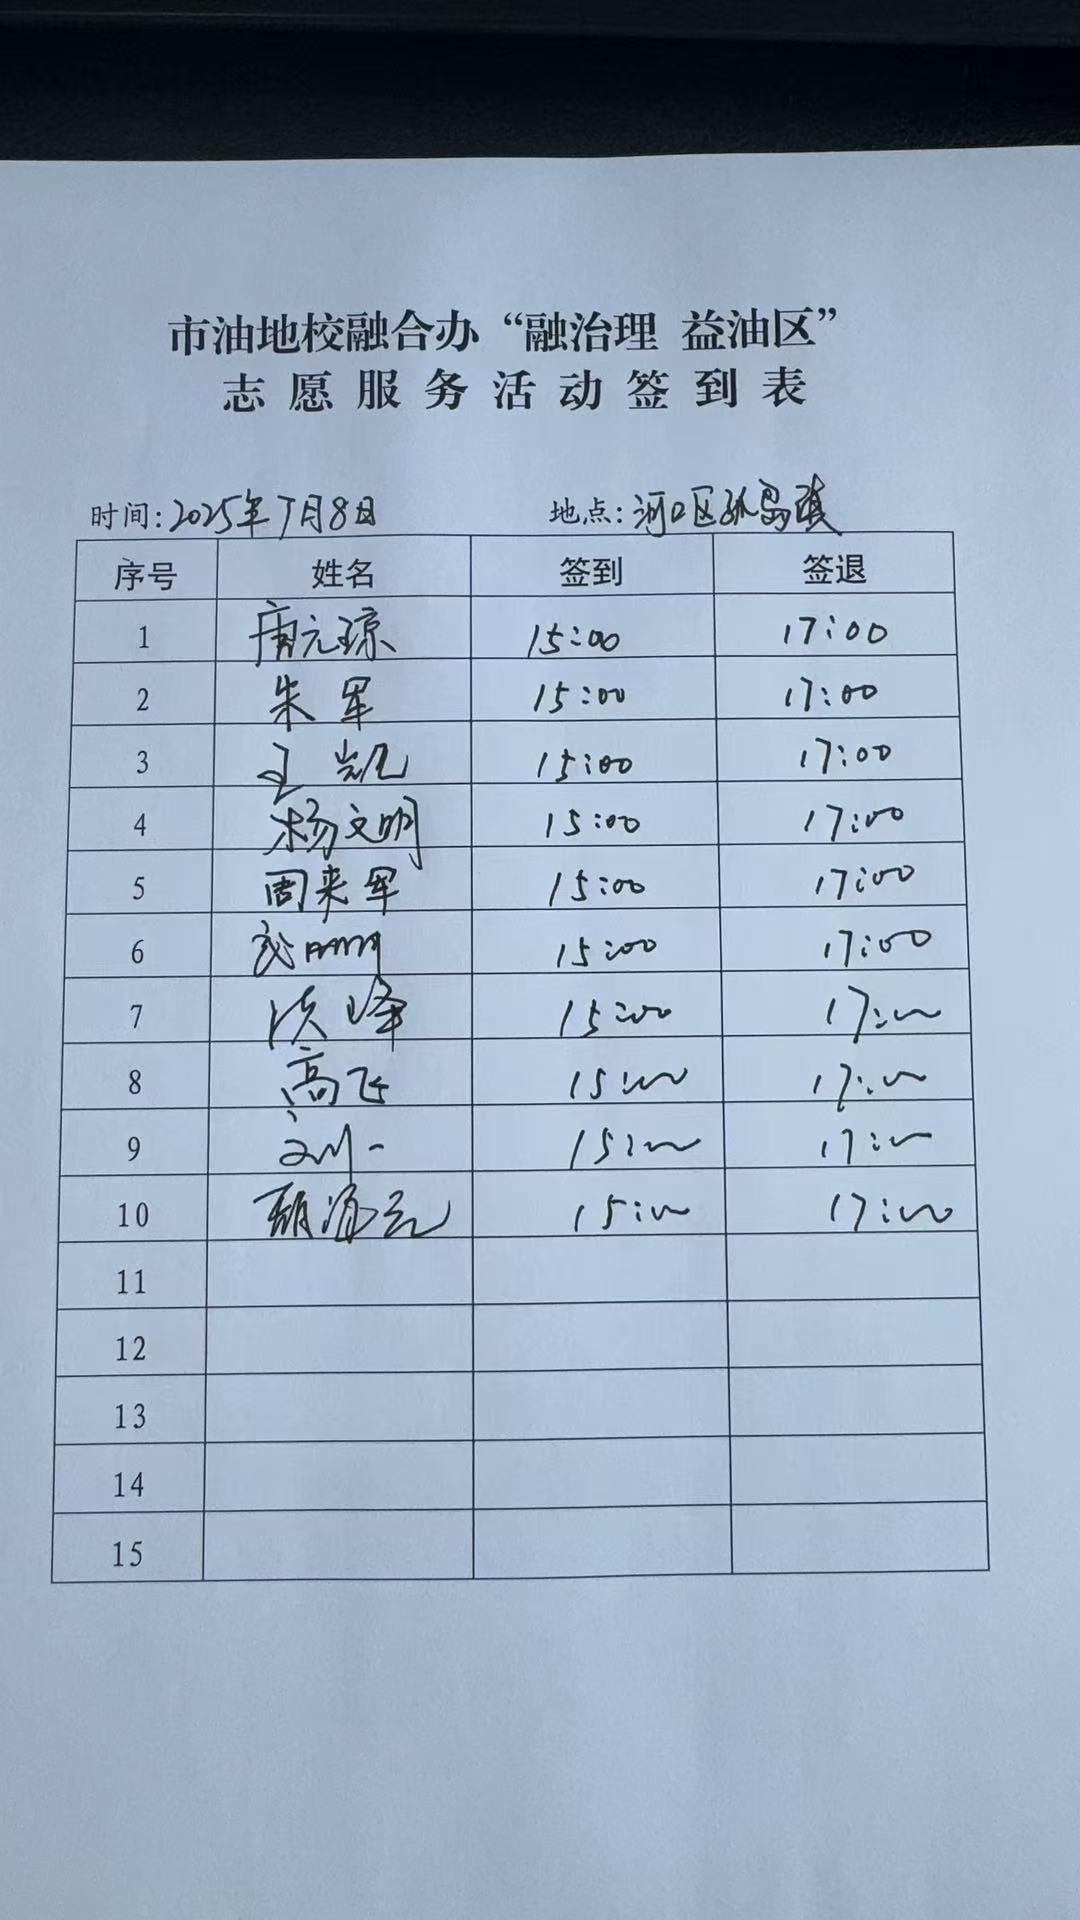 市油地校融合办“融治理 益油区”
志愿服务活动签到表
时间:2025年7月8日 地点:河口区孤岛镇
序号 姓名 签到 签退
1 唐元琼 15:00 17:00
2 朱军 15:00 17:00
3 王凯 15:00 17:00
4 杨文明 15:00 17:00
5 周来军 15:00 17:00
6 15:00 17:00
7 峰 15:00 17:00
8 高飞 15:00 17:00
9 15:00 17:00
10 15:00 17:00
11
12
13
14
15